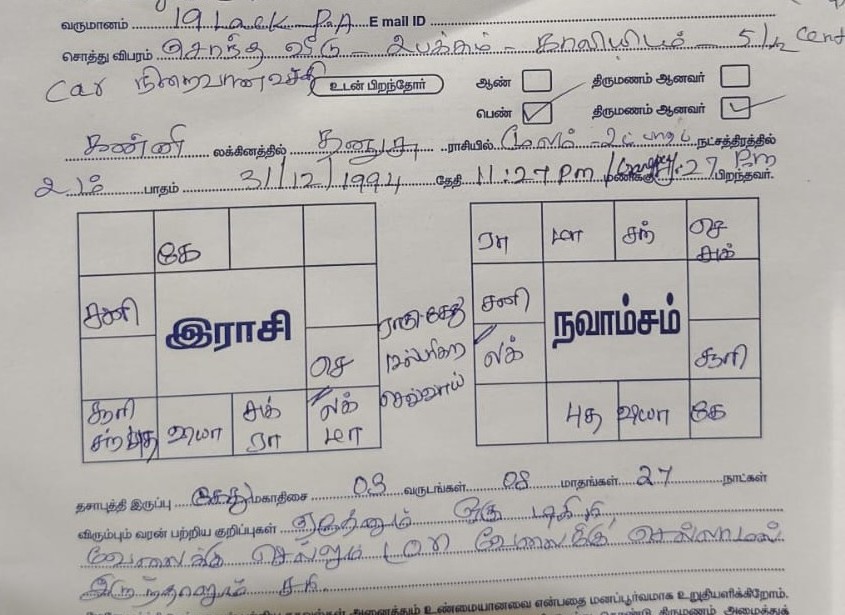 வருமானம் 19 Lack P.A E mail ID
சொத்து விபரம் சொந்த வீடு - உபக்கம் - காலியிடம் 5 1/2 Cent
Car நிறைவான வசதி உடன் பிறந்தோர் ஆண் திருமணம் ஆனவர்
பெண் திருமணம் ஆனவர்
கன்னி லக்கினத்தில் தனுசு ராசியில் மூலம் - 2ம் பாதம் நட்சத்திரத்தில்
2ம் பாதம் 31/12/1994 தேதி 11:27 Pm மணிக்கு 27 Pm பிறந்தவர்.
கே
சனி
இராசி
செ
சூரி சந் புத
வியா
சுக் ரா
லக் மா
ராகு கேது
செவ்வாய்
ரா
மா
சந்
செ சுக்
சனி
நவாம்சம்
லக்
சூரி
புத
வியா
கே
தசாபுத்தி இருப்பு கேது மகாதிசை 03 வருடங்கள் 08 மாதங்கள் 27 நாட்கள்
விரும்பும் வரன் பற்றிய குறிப்புகள் ஏதேனும் ஒரு டிகிரி
வேலைக்கு செல்லும் (or) வேலைக்கு செல்லாமல்
இருந்தாலும் சரி
அனைத்தும் உண்மையானவை என்பதை மனப்பூர்வமாக உறுதியளிக்கிறோம்.